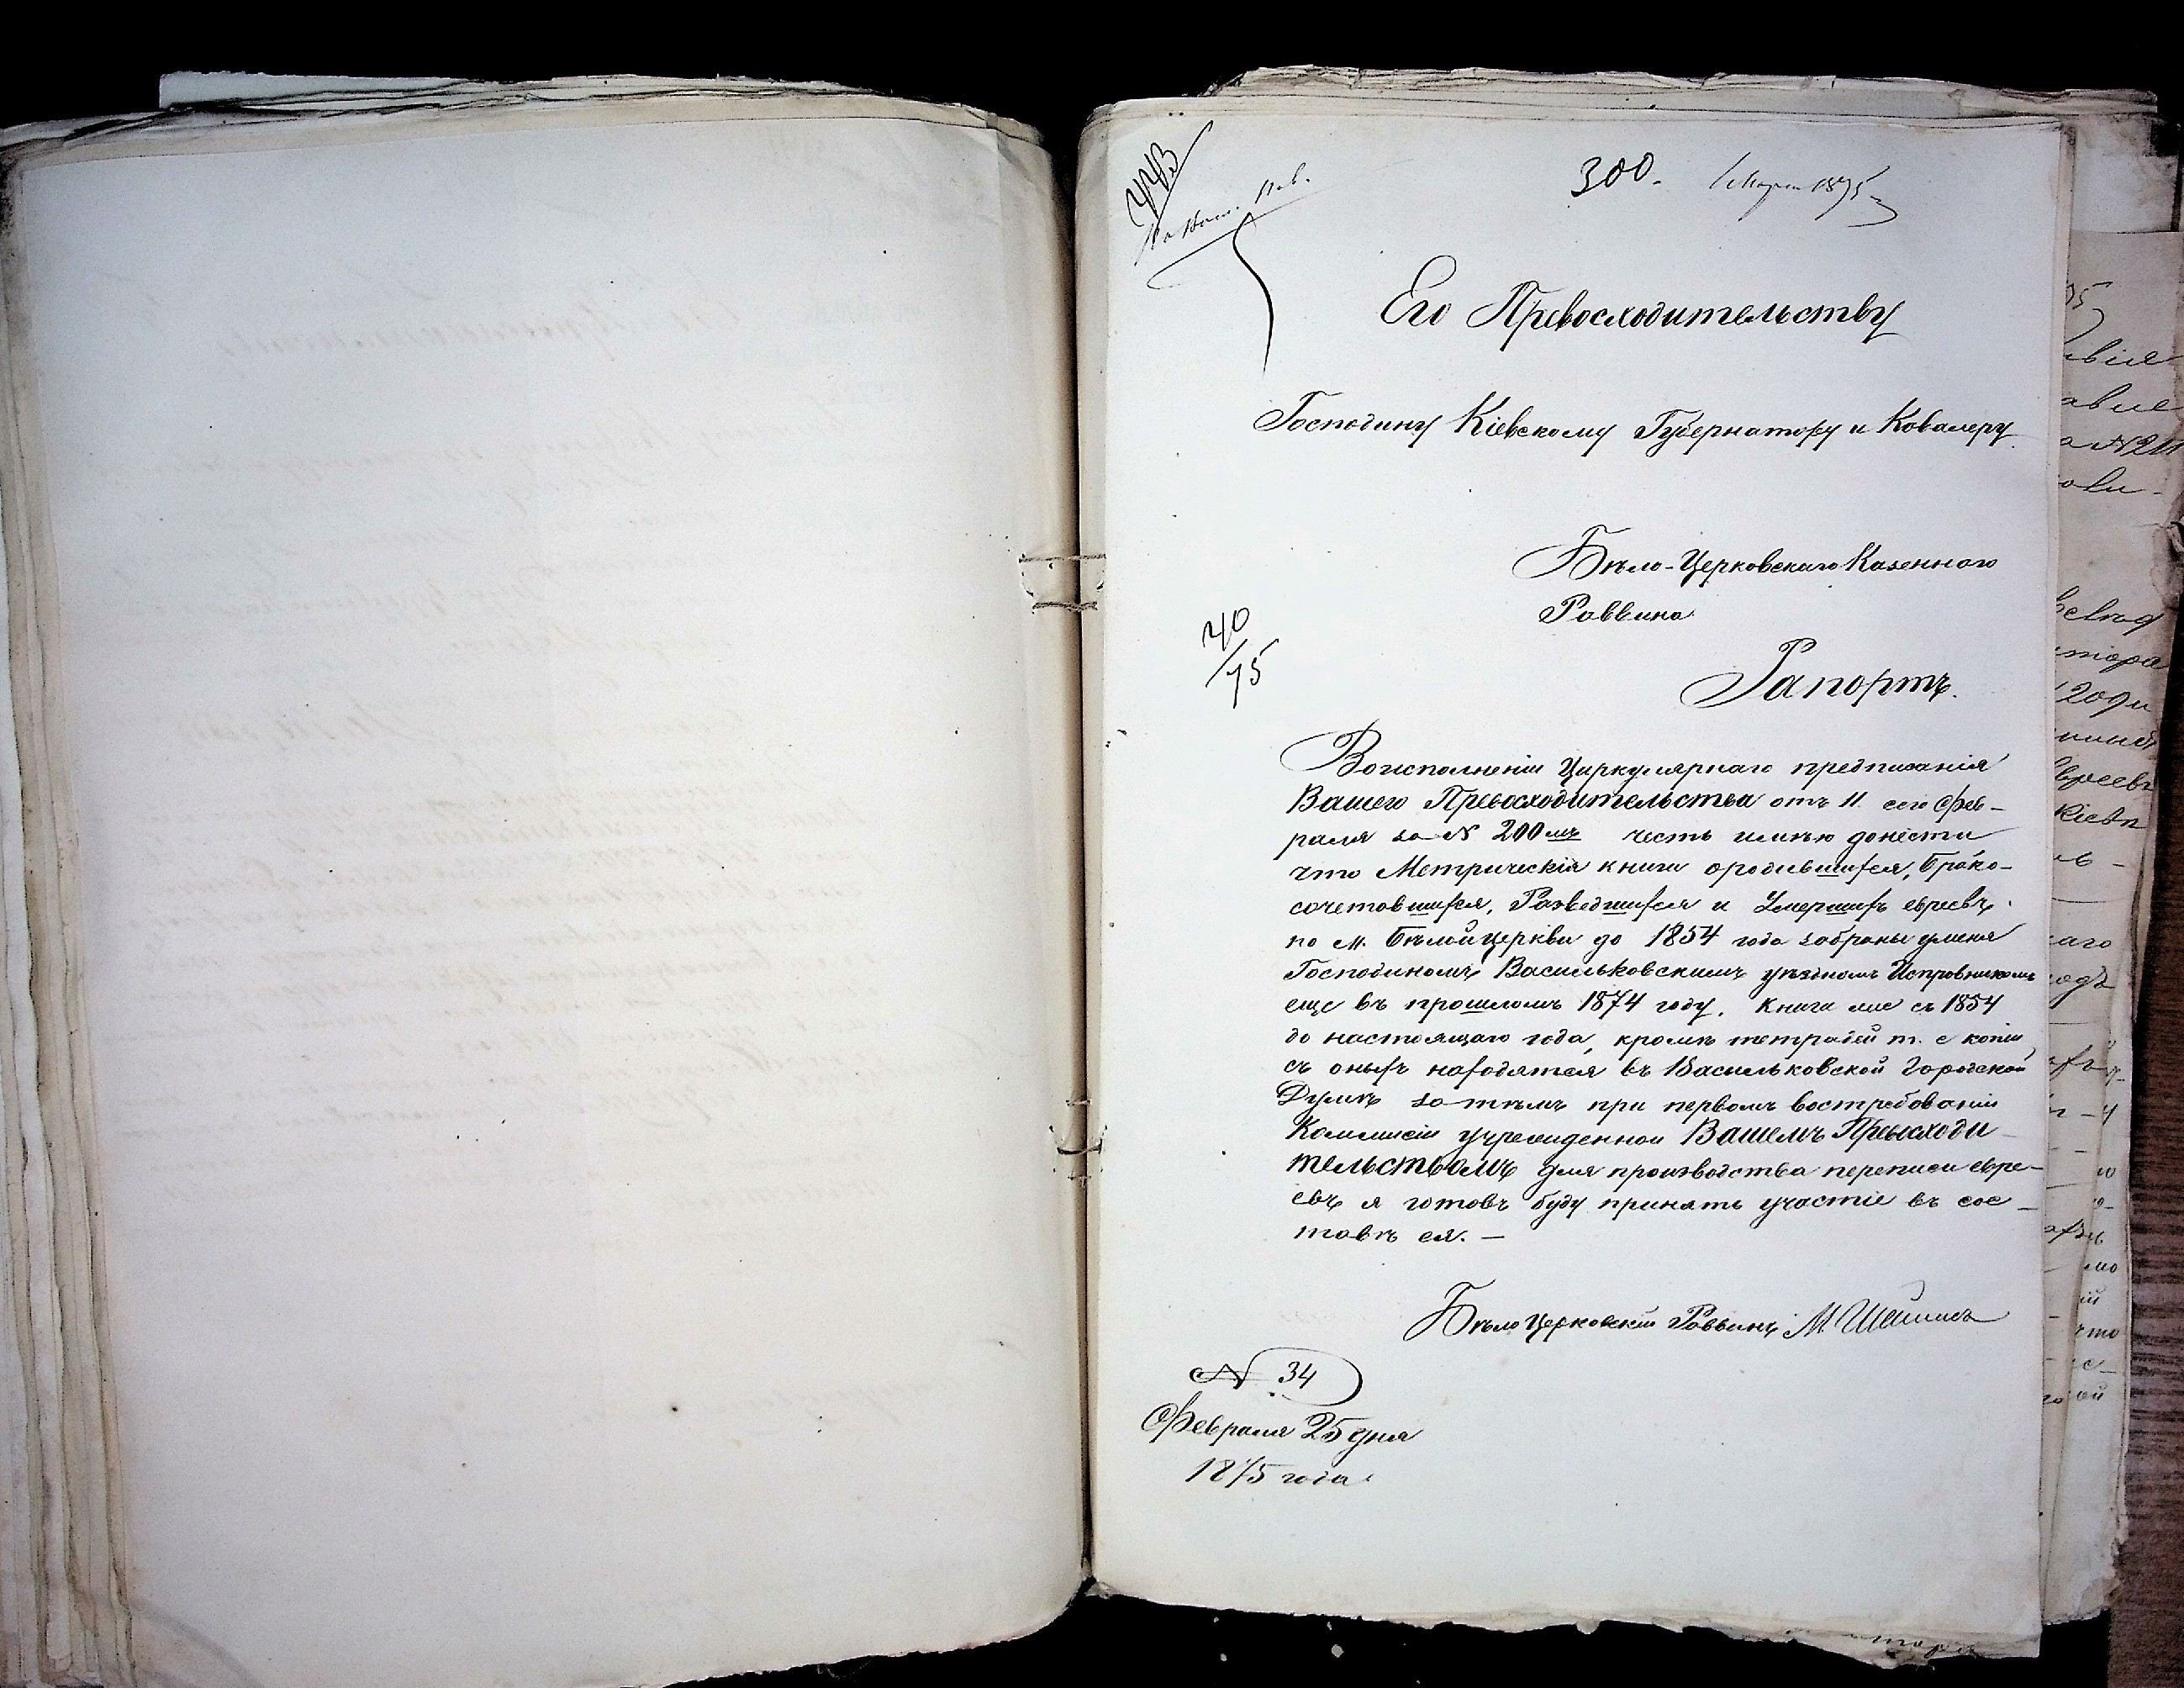 300. 1 Марта 1875
Его Превосходительству
Господину Кіевскому Губернатору и Кавалеру
Бѣло-Церковскаго Казеннаго
Раввина
40
/75
Рапортъ.
Воисполненіи Циркулярнаго предписанія
Вашего Превосходительства отъ 11. сего Фев-
раля за № 200мъ честь имѣю донести
что Метрическія книги ородившихся, Брако-
сочетовшихся, Разведшихся и Умершихъ евреевъ
по м. Бѣлой церкви до 1854 года забраны уменя
Господиномъ Васильковскимъ уѣзднымъ Исправникомъ
еще въ прошломъ 1874 году. Книги мие съ 1854
до настоящаго года, кромѣ тетрадей т. е копіи
съ оныхъ находятся въ Васильковской Городской
Думѣ за-тѣмъ при первомъ востребованіи
Коммисіи учрежденной Вашемъ Превосходи-
тельствомъ для производства переписи евре-
евъ я готовъ буду принять участіе въ сос-
тавѣ ея. —
Бѣлоцерковскій Раввинъ М.
№ 34
Февраля 25 дня
1875 года